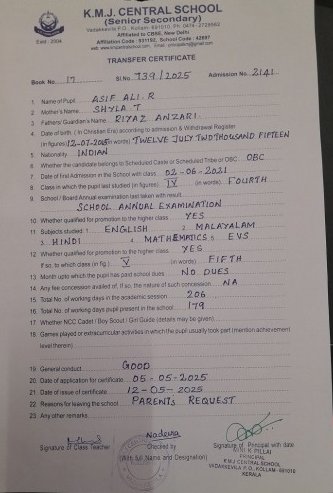 K.M.J. CENTRAL SCHOOL
(Senior Secondary)
Vadakkevila P.O, Kollam- 691010, Ph: 0474 - 2728562
Affiliated to CBSE, New Delhi
Affiliation Code : 931192, School Code : 42687
Estd : 2004
TRANSFER CERTIFICATE
Book No. 17 Sl.No 739/2025 Admission No. 2141
1 Name of Pupil ASIF ALI.R
2 Mother's Name SHYLA T
3 Fathers/ Guardian's Name RIYAZ ANZARI
4 Date of birth ( In Christian Era) according to admission & Withdrawal Register
(in figures) 12-07-2015 (in words) TWELVE JULY TWO THOUSAND FIFTEEN
5. Nationality INDIAN
6 Whether the candidate belongs to Scheduled Caste or Scheduled Tribe or OBC OBC
7 Date of first Admission in the School with class 02-06-2021
8 Class in which the pupil last studied (in figures) IV (in words) FOURTH
9 School / Board Annual examination last taken with result
SCHOOL ANNUAL EXAMINATION
10. Whether qualified for promotion to the higher class YES
11 Subjects studied 1 ENGLISH 2 MALAYALAM
3 HINDI 4 MATHEMATICS 5 EVS
12 Whether qualified for promotion to the higher class YES
If so, to which class (in fig.) V (in words) FIFTH
13 Month upto which the pupil has paid school dues NO DUES
14 Any fee concession availed of, if so, the nature of such concession NA
15 Total No. of working days in the academic session 206
16 Total No. of working days pupil present in the school 179
17 Whether NCC Cadet / Boy Scout / Girl Guide (details may be given)
18 Games played or extracurricular activities in which the pupil usually took part (mention achievement
level therein)
19 General conduct GOOD
20 Date of application for certificate 05-05-2025
21 Date of issue of certificate 12-05-2025
22 Reasons for leaving the school PARENTS REQUEST
23 Any other remarks
Nadeera
Signature of Class Teacher Checked by Signature of Principal with date
(With full Name and Designation) MINI K PILLAI
PRINCIPAL
KMJ CENTRAL SCHOOL
VADAKKEVILA P.O, KOLLAM - 691010
KERALA